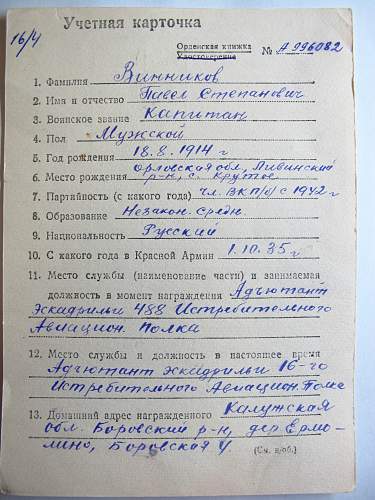 16/4
Учетная карточка
Орденская книжка
Удостоверение № А 996082
1. Фамилия Винников
2. Имя и отчество Павел Степанович
3. Воинское звание Капитан
4. Пол Мужской
5. Год рождения 18.8.1914 г
Орловская обл, Ливинский
6. Место рождения р-н, с. Крутое
7. Партийность (с какого года) чл. ВКП/б/ с 1942 г
8. Образование Незакон. средн.
9. Национальность Русский
10. С какого года в Красной Армии 1.10.35 г
11. Место службы (наименование части) и занимаемая
должность в момент награждения Адъютант
Эскадрильи 488 Истребительного
Авиацион. Полка
12. Место службы и должность в настоящее время
Адъютант эскадрильи 16-го
Истребительного Авиацион. Полка
13. Домашний адрес награжденного Калужская
обл. Боровский р-н, дер Ермо-
лино, Боровская 4.
(См. н/об.)